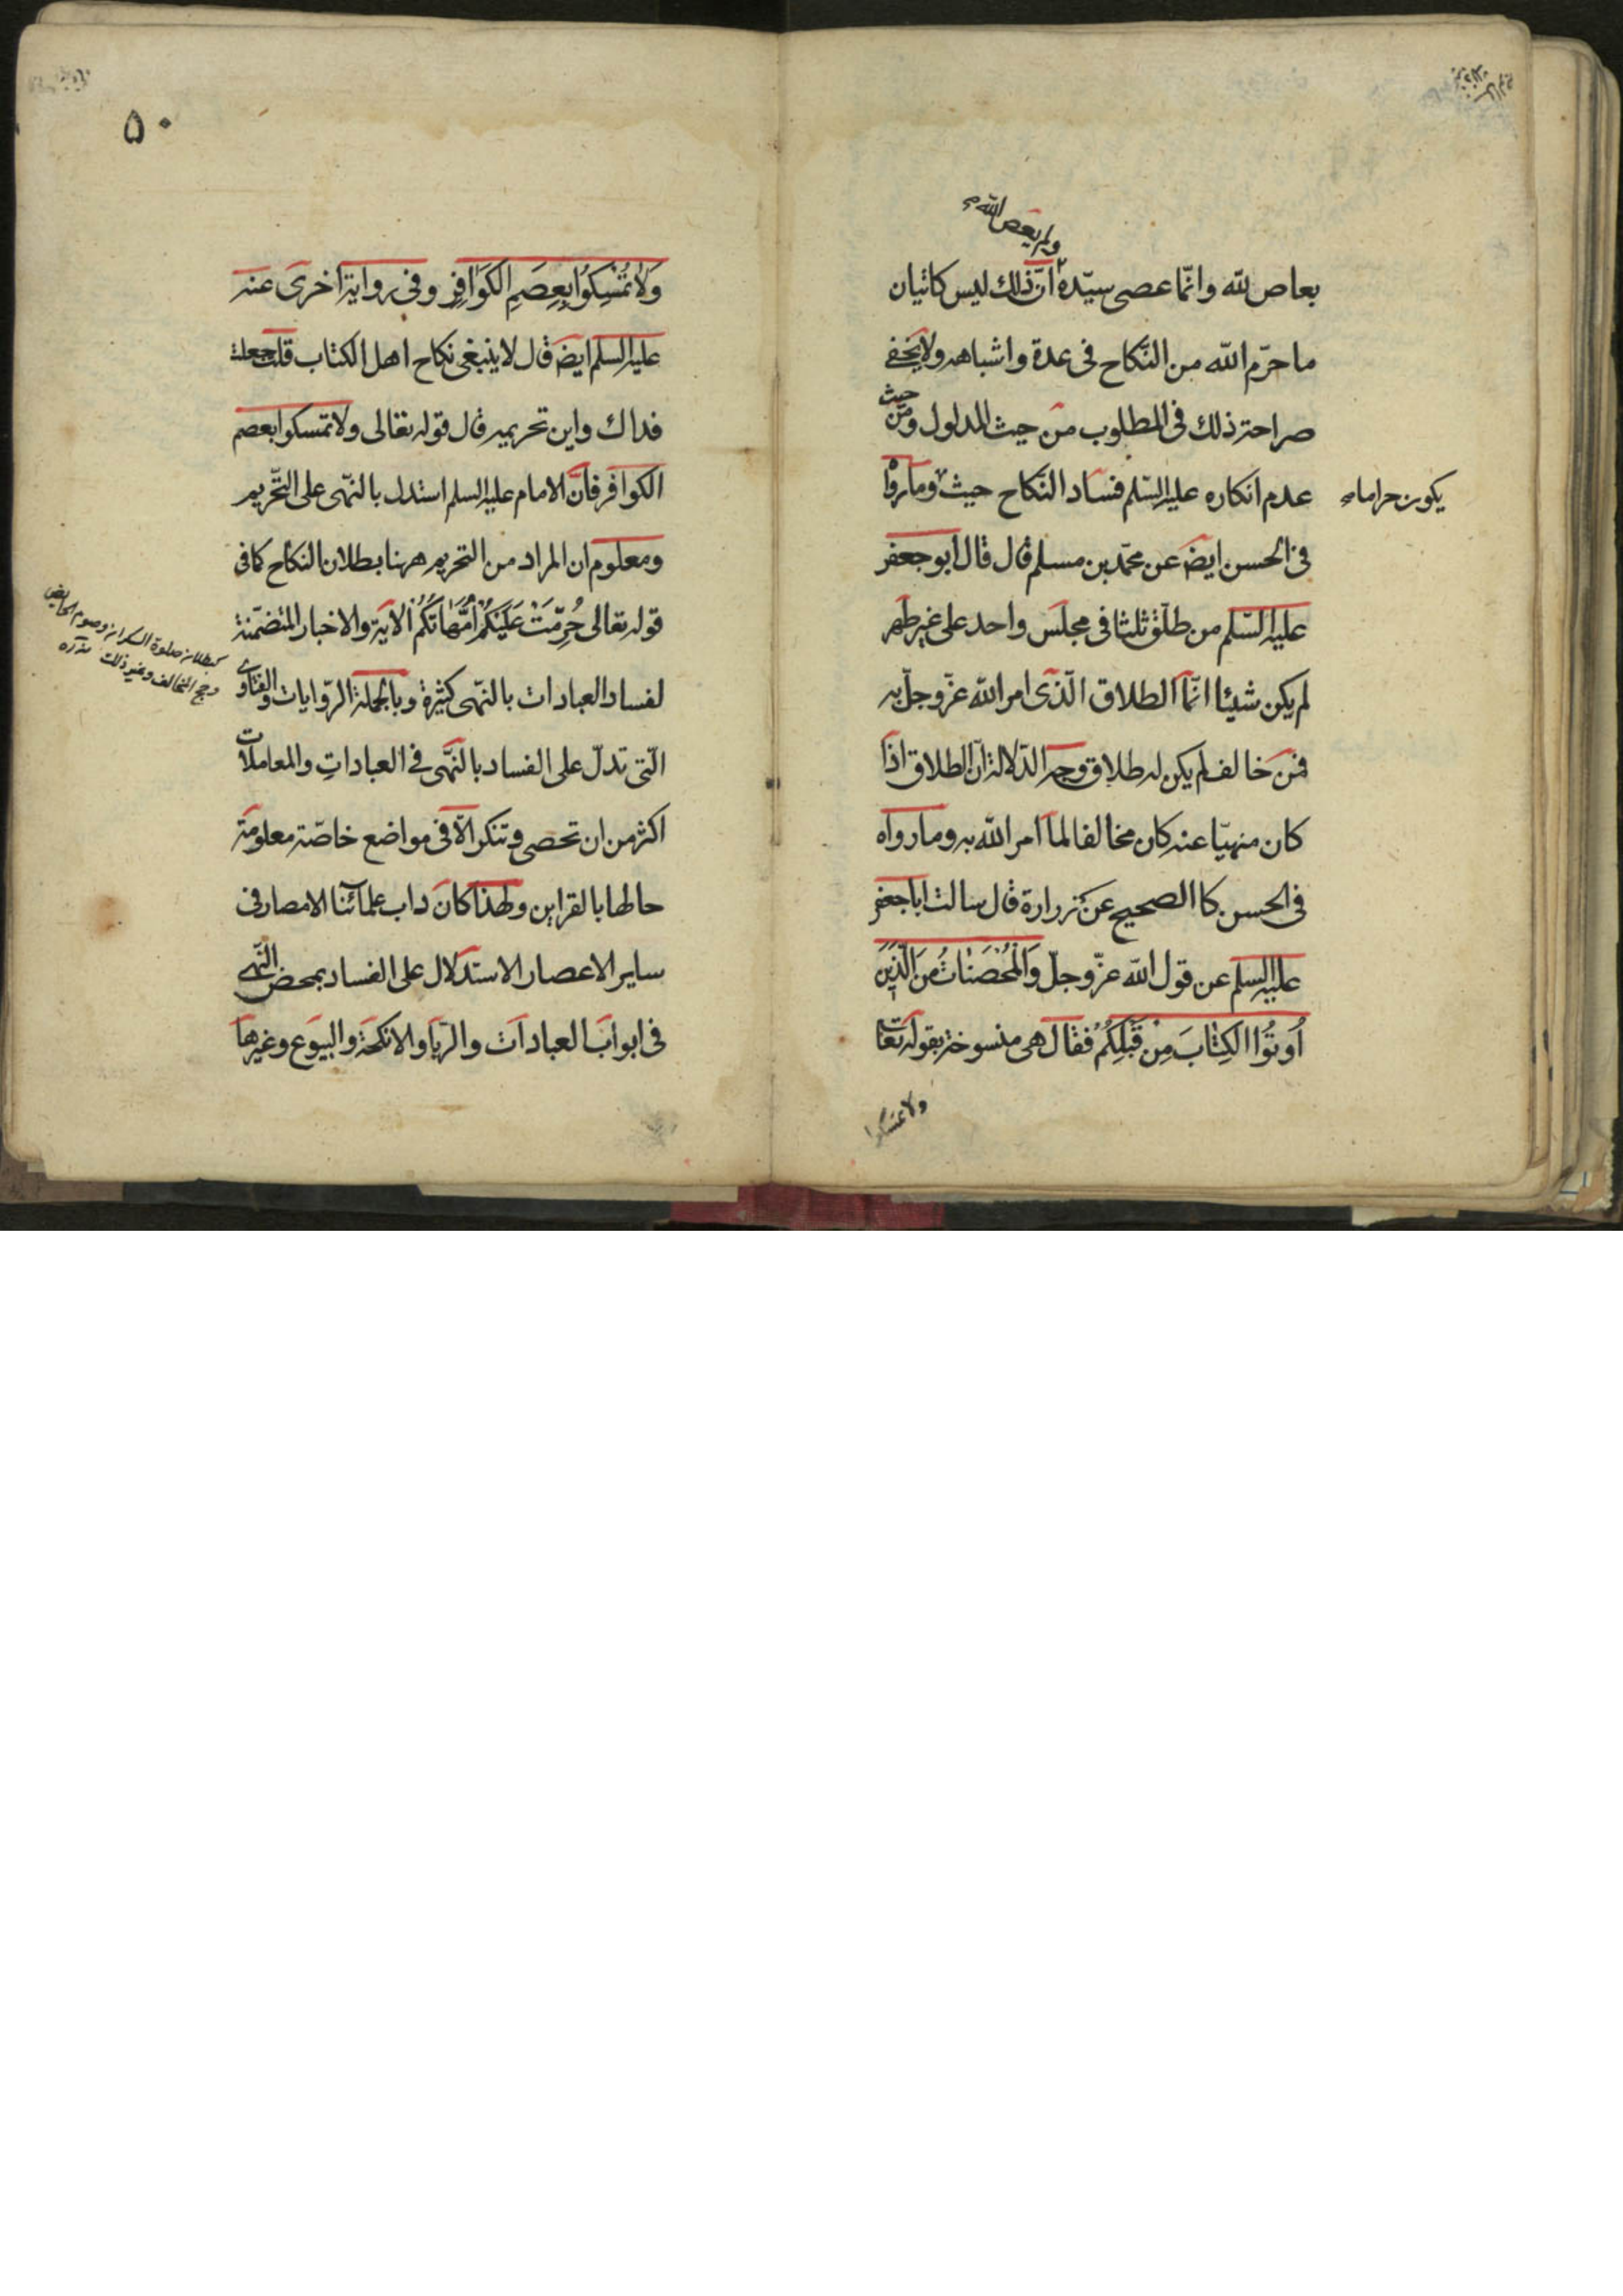 ولم يعص الله
بعاص لله وانّما عصى سيّده انّ ذلك ليس كاتيان
ما حرّم الله من النّكاح فى عدة واشباهه ولا يخفى
صراحة ذلك فى المطلوب من حيث المدلول ومن حيث
عدم انكاره عليه السّلم فساد النّكاح حيث وما روا
يكون حراما
فى الحسن ايضَ عن محمّد بن مسلم قال قال ابو جعفر
عليه السّلم من طلّق ثلثا فى مجلس واحد على غير طهر
لم يكن شيئا انّما الطلاق الّذى امر الله عزّ وجلّ به
فمن خالف لم يكن له طلاق وجه الدّلالة انّ الطلاق اذا
كان منهيّا عنه كان مخالفا لما امر الله به وما رواه
فى الحسن كا الصحيح عن زرارة قال سالت ابا جعفر
عليه السلم عن قول الله عزّ وجلّ وَالْمُحْصَنَاتُ مِنَ الَّذِينَ
اُوتُوا الكِتَابَ مِنْ قَبْلِكُمْ فقال هى منسوخة بقوله تعا
ولا تمسكوا
۵۰
وَلَا تُمْسِكُوا بِعِصَمِ الكَوَافِرِ وفى رواية اخرى عنه
عليه السلم ايضَ قال لا ينبغى نكاح اهل الكتاب قلت جعلت
فداك واين تحريمه قال قوله تعالى ولا تمسكوا بعصم
الكوافر فانّ الامام عليه السلم استدل بالنّهى على التّحريم
ومعلوم ان المراد من التحريم ههنا بطلان النكاح كما فى
قوله تعالى حُرِّمَتْ عَلَيْكُمْ اُمَّهَاتُكُمْ الاية والاخبار المتضمّنة
لفساد العبادات بالنّهى كثيرة وبالجملة الرّوايات والفتاوى
كبطلان صلوة السكران وصوم الحايض
وحج المخالف وغير ذلك
الّتى تدلّ على الفساد بالنّهى فى العباداتِ والمعاملات
اكثر من ان تحصى وتنكر الّا فى مواضع خاصّة معلومة
حالها بالقراين ولهذا كان داب علمائنا الامصار فى
ساير الاعصار الاستدلال على الفساد بمحض النّهى
فى ابواب العبادات والرّبا والانكحة والبيوع وغيرها